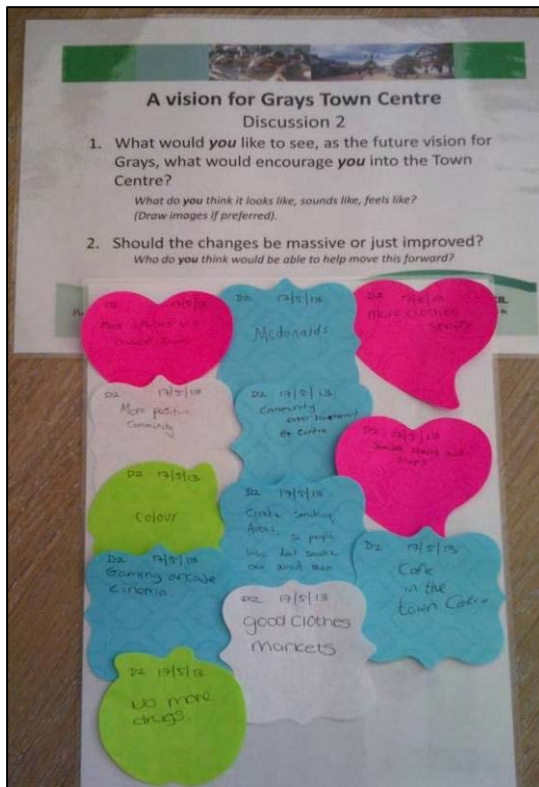 A vision for Grays Town Centre
Discussion 2
1. What would you like to see, as the future vision for
Grays, what would encourage you into the Town
Centre?
What do you think it looks like, sounds like, feels like?
(Draw images if preferred).
2. Should the changes be massive or just improved?
Who do you think would be able to help move this forward?
D2 17/5/13
D2 17/5/13
Mcdonalds
D2 17/5/13
More clothes
shops
D2 17/5/13
More positive
Community
D2 17/5/13
Community
Centre
D2 17/5/13
D2 17/5/13
Colour
D2 17/5/13
Create Smoking
Areas, so people
who dont smoke
can avoid them
D2 17/5/13
Gaming arcade
cinema
D2 17/5/13
Cafe
in the
town Centre
D2 17/5/13
good clothes
markets
D2 17/5/13
No more
drugs.